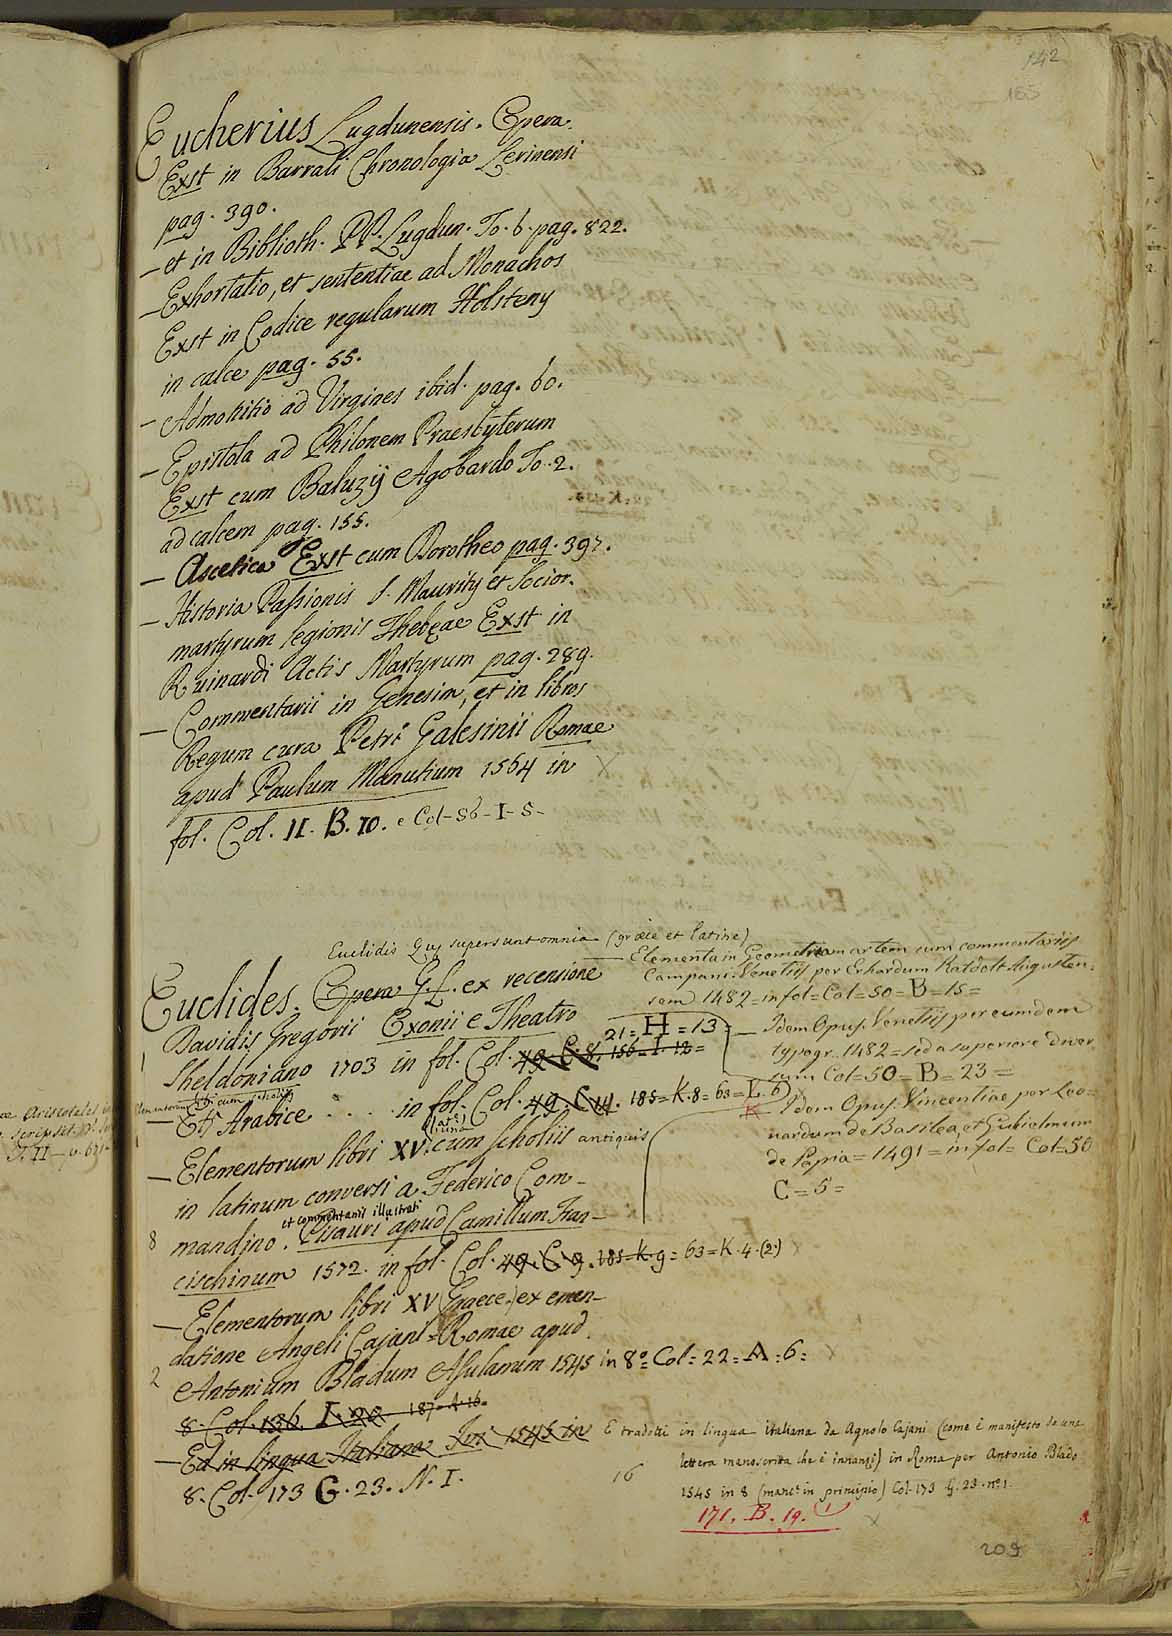 142
165
Eucherius Lugdunensis. Opera.
Exst in Barrali Chronologia Lerinensi
pag. 390.
— et in Biblioth. PP. Lugdun. To. 6. pag. 822.
— Exhortatio, et sententiae ad Monachos
Exst in Codice regularum Holstenÿ
in calce pag. 55.
— Admonitio ad Virgines ibid. pag. 60.
— Epistola ad Philonem Praesbÿterum
Exst cum Baluzÿ Agobardo To. 2.
ad calcem pag. 155.
— Ascetica Exst cum Dorotheo pag. 397.
— Historia Passionis S. Mauritÿ et Socior.
martyrum legionis Thebeae Exst in
Ruinardi Actis Martyrum pag. 289.
— Commentarii in Genesim, et in libros
Regum cura Petri Galesinii Romae
apud Paulum Manutium 1564 in
fol. Col. II. B. 10. e Col-56-I-5-
Euclidis quae supersunt omnia (graece et latine)
Euclides. Opera G. L. ex recensione
Davidis Gregorii Exonii e Theatro
21=H=13=
Sheldoniano 1703 in fol. Col. 49. C. 8. 156=I.12=
Elementorum cum scholiis
— Et Arabice .... in fol. Col. 49. C. 185=K.8=63=L.6
latine
— Elementorum libri XV. cum scholiis antiquis
in latinum conversi a Federico Com-
et commentariis illustrati
8 mandino. Pisauri apud Camillum Fran-
cischinum 1572. in fol. Col. 49. C. 9. 185=K.9=63=K.4.(2)
— Elementorum libri XV (Graece) ex emen-
datione Angeli Cajani = Romae apud
2 Antonium Bladum Asulanum 1545 in 8º= Col=22=A=6=
8. Col. 136. I. 187=A.16=
— Ed in lingua Italiana Ivi 1545 in
8. Col. 173 G. 23. N. I.
— Elementa in Geometriam artem cum commentariis
Campani: Venetiis per Erhardum Ratdolt Augusten.
sem 1482=in fol=Col=50=B=15=
— Idem Opus. Venetiis per eumdem
typogr. 1482=sed a superiore diver-
sum Col=50=B=23=
Idem Opus. Vincentiae per Leo=
nardum de Basilea, et Gulielmum
de Papia=1491=in fol= Col=50
C=5=
E tradotti in lingua italiana da Agnolo Cajani (come è manifesto da una
lettera manoscritta che è innanzi) in Roma per Antonio Blado
16
1545 in 8 (manca in principio) Col. 173 G. 23. nº1.
171. B. 19. 1
209